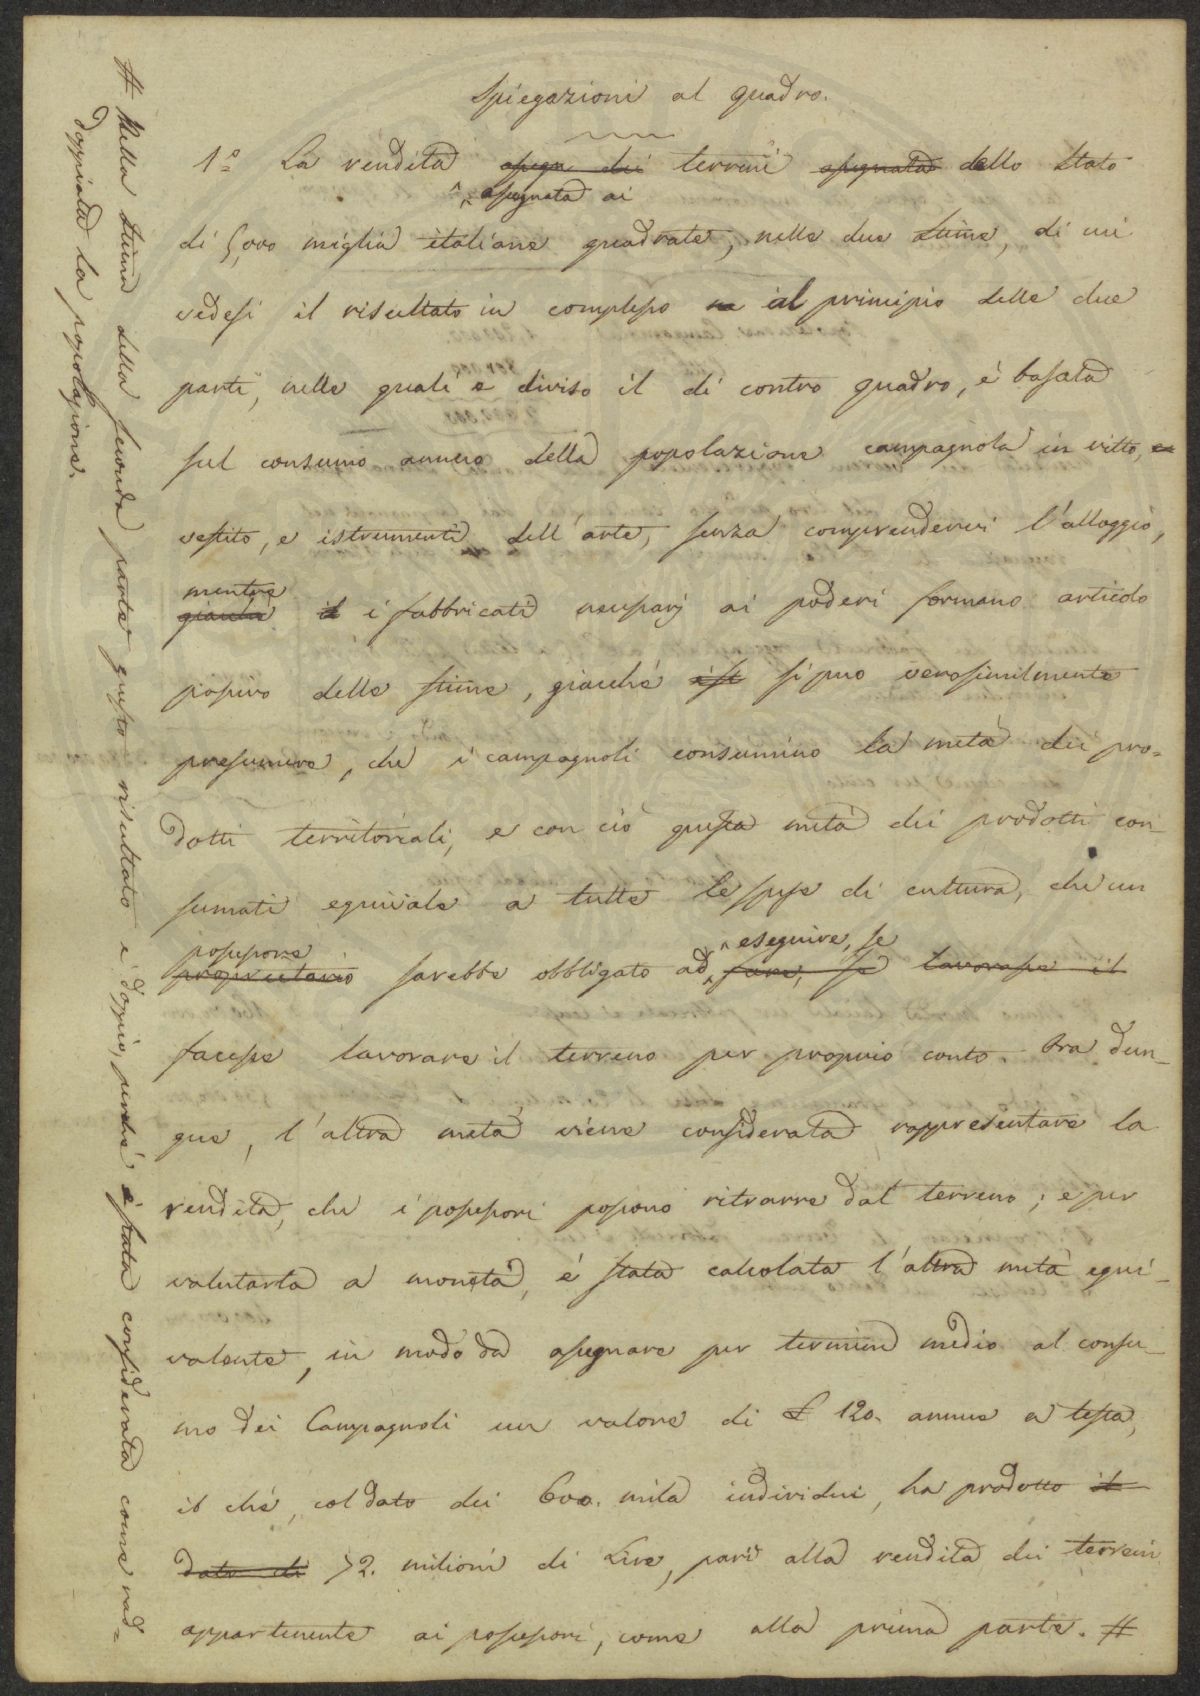 Spiegazioni al quadro.
1º La rendita assegn dei terreni assegnata dello Stato
assegnata ai
di 5,000 miglia italiane quadrate, nelle due stime, di cui
vedesi il risultato in complesso ne al principio delle due
parti, nelle quali è diviso il di contro quadro, è basata
sul consumo annuo della popolazione campagnola in vitto, e
vestito, e istrumenti dell'arte, senza comprendervi l'alloggio,
mentre
giacché il i fabbricati necessarj ai poderi formano articolo
passivo delle stime, giacché si può verosimilmente
presumere, che i campagnoli consumino la metà dei pro=
dotti territoriali, e con ciò questa metà dei prodotti con_
sumati equivale a tutte le spese di cultura, che un
possessore eseguire, se
proprietario sarebbe obbligato ad fare, se lavorasse il
facesse lavorare il terreno per proprio conto. Ora dun_
que, l'altra metà viene considerata rappresentare la
rendita, che i possessori possono ritrarre dal terreno; e per
valutarla a moneta, è stata calcolata l'altra metà equi_
valente, in modo da assegnare per termine medio al consu_
mo dei Campagnoli un valore di £ 120. annue a testa,
il che, col dato dei 600. mila individui, ha prodotto il
dato di 72. milioni di Lire, pari alla rendita dei terreni
appartenente ai possessori, come alla prima parte. #
# Nella stima della seconda parte questo risultato è doppio, perché è stata considerata come rad=
doppiata la popolazione.